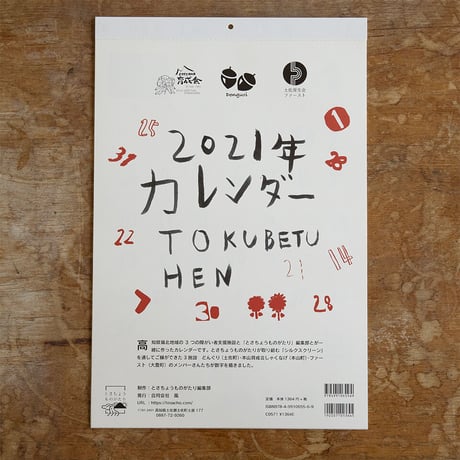 育成会
Donguri
土佐厚生会
ファースト
25
2021年
1
31
カレンダー
20
22
TOKUBETU
21
14
HEN
7
30
28
高知県嶺北地域の3つの障がい者支援施設と「とさちょうものがたり」編集部とが一
緒に作ったカレンダーです。とさちょうものがたりが取り組む「シルクスクリーン」
を通してご縁ができた3施設 どんぐり(土佐町)・本山育成会しゃくなげ(本山町)・ファー
スト(大豊町)のメンバーさんたちが数字を描きました。
とさちょう
ものがたり
制作:とさちょうものがたり編集部
発行:合同会社 風
URL : https://tosacho.com/
高知県土佐郡土佐町土居177
0887-72-9260
定価:本体 1,364円+税
ISBN978-4-9910655-6-9
C0571 ¥1364E